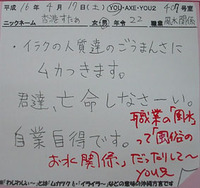 平成 16年 4月 17日(土) YOU・AXE・YOU2 407号室
ニックネーム 女・男 年令 22 職業 風水関係
・イラクの人質達のごうまんさに
ムカつきます。
君達、亡命しなさーい。
自業自得です。
職業の「風水」
って「風俗の
お水関係」だったりして〜
YOU2
などの意味の沖縄方言です